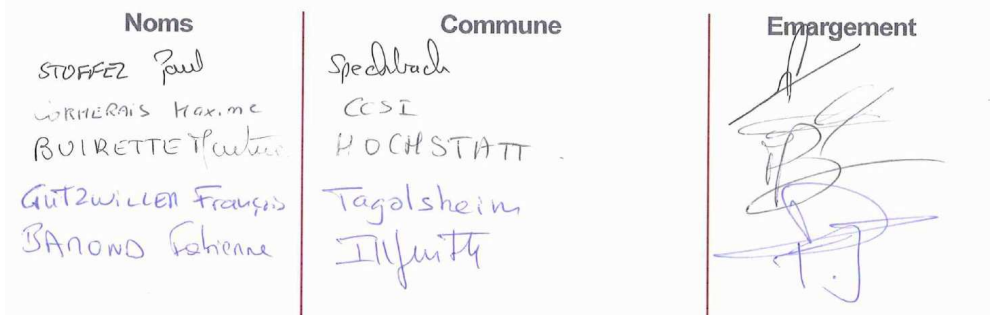 Noms Commune Emargement
STOFFEL Paul Spechbach
CORMERAIS Maxime CCSI
BUIRETTE HOCHSTATT
GUTZWILLER François Tagolsheim
BAMOND Fabienne Illfurth